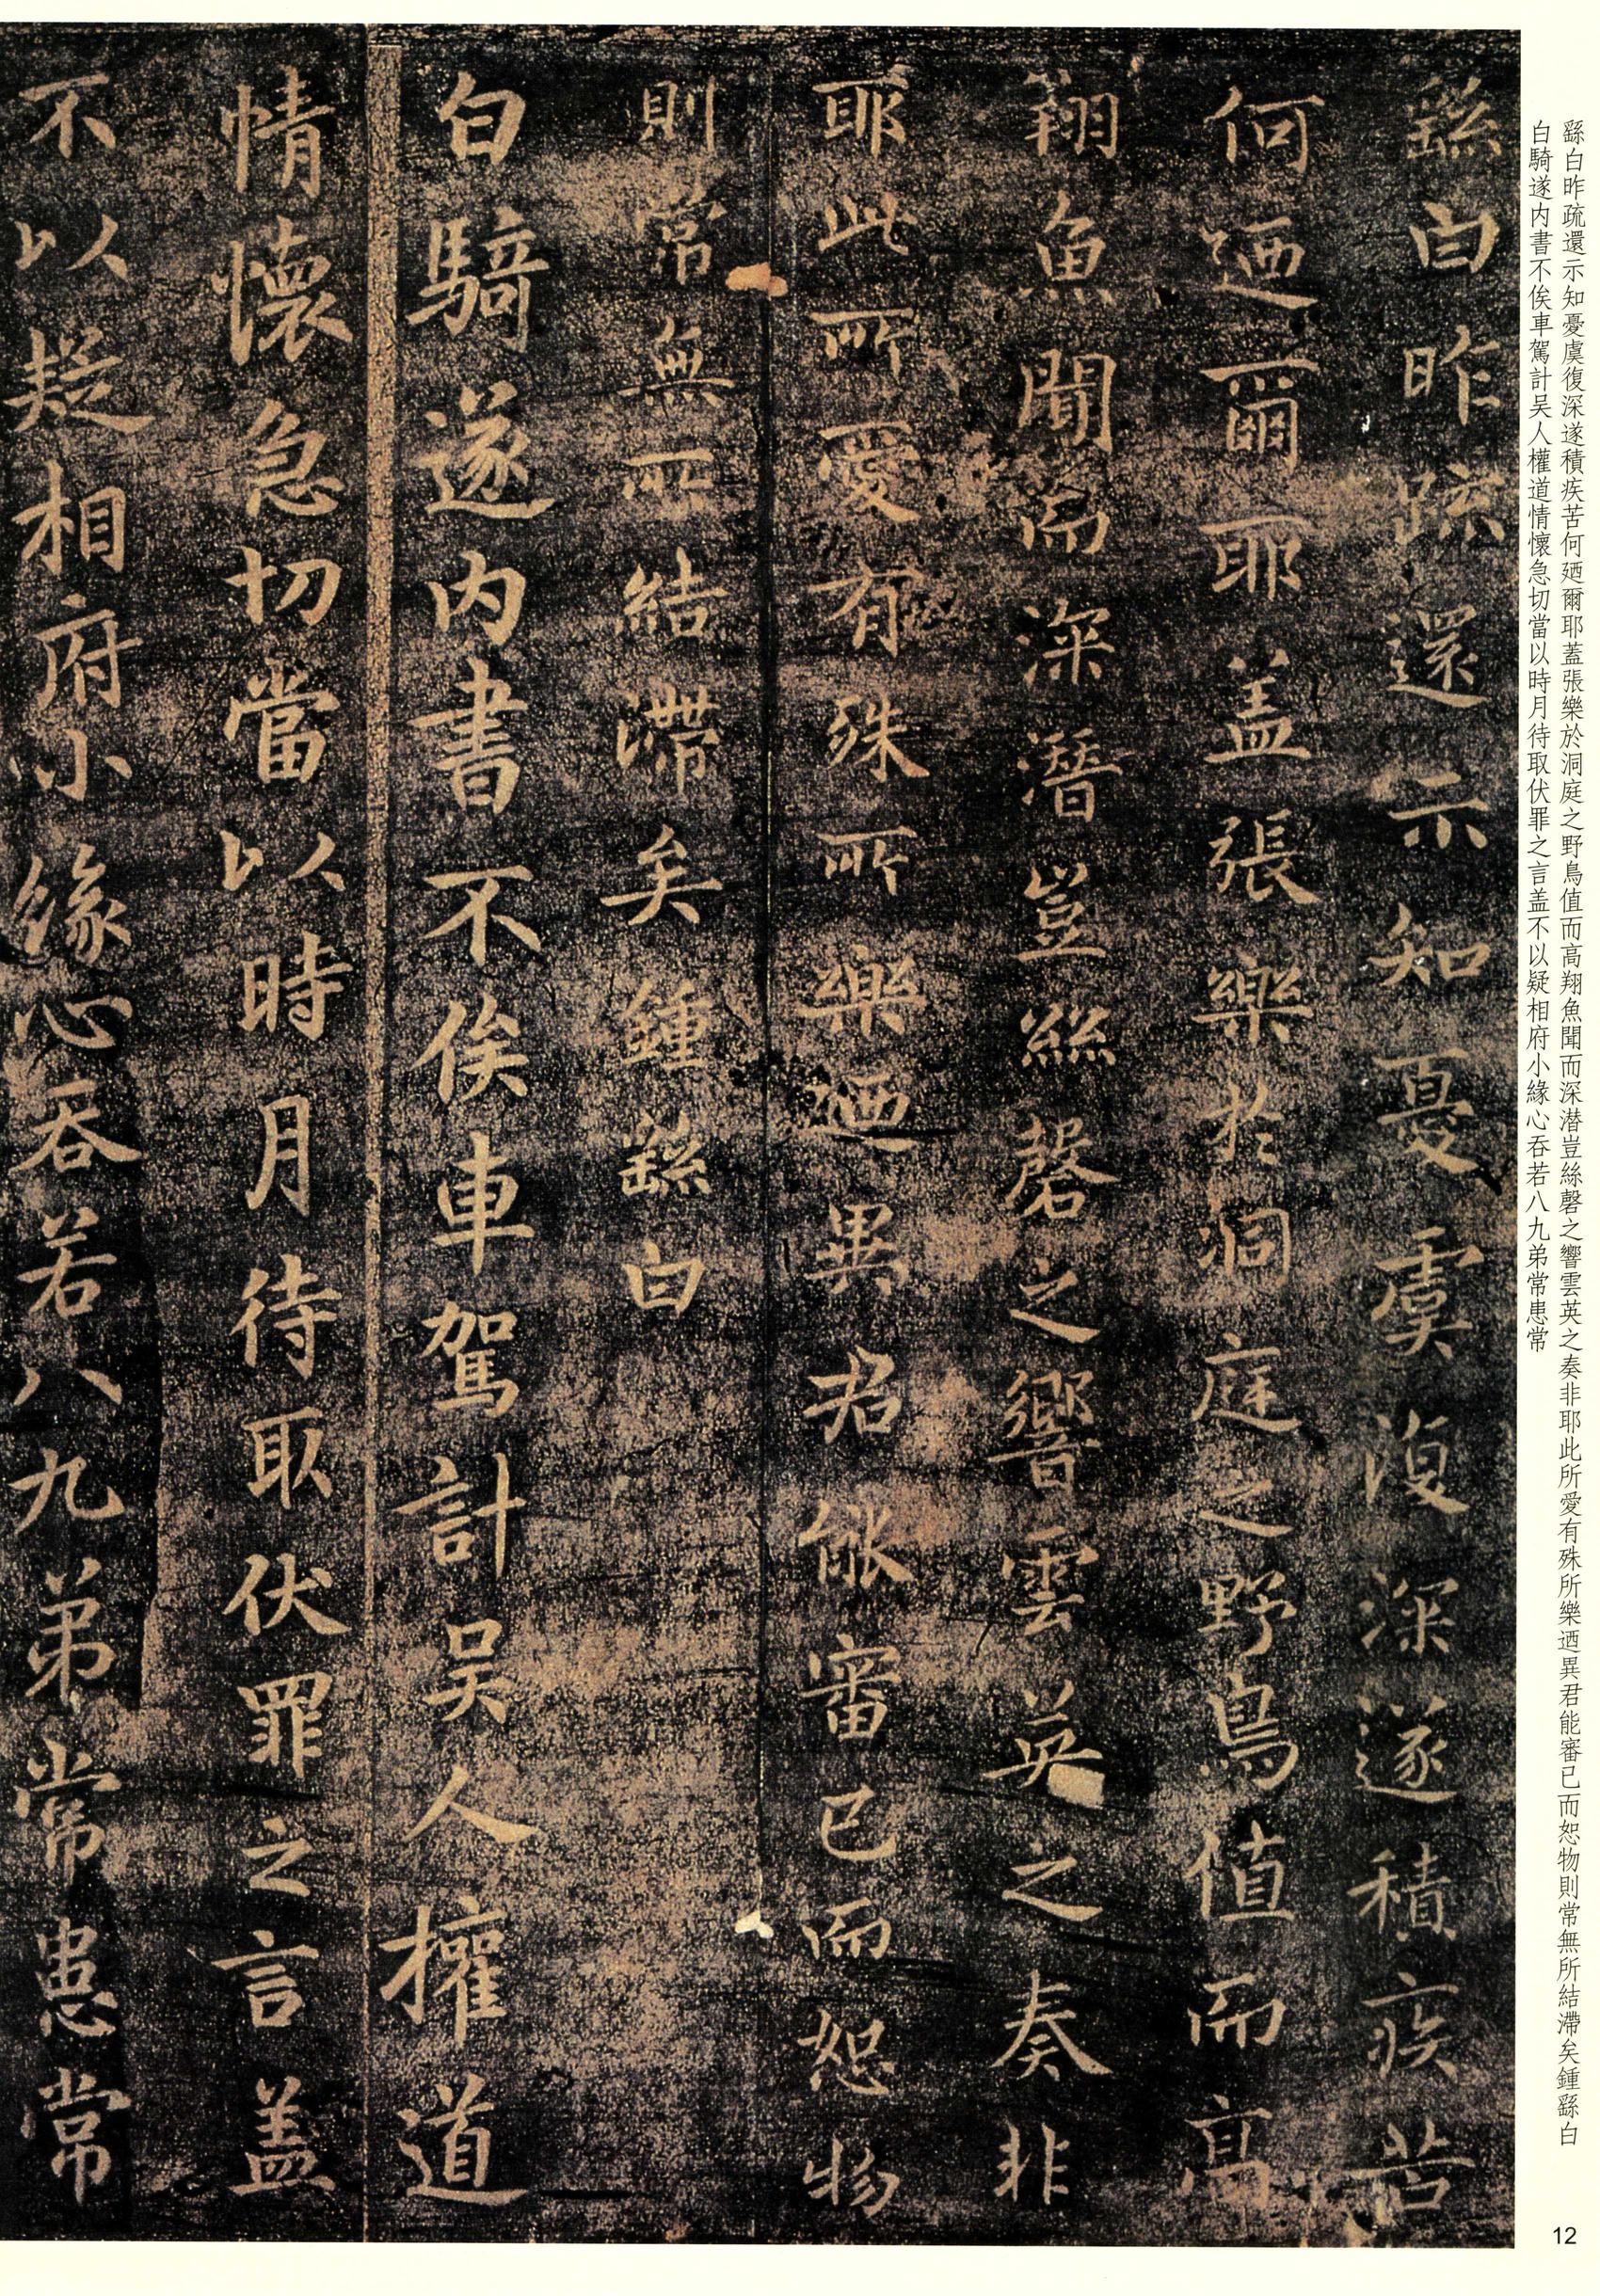 繇白昨疏還示知憂虞復深遂積疾苦何廼爾耶蓋張樂於洞庭之野鳥值而高翔魚聞而深潛豈絲磬之響雲英之奏非耶此所愛有殊所樂迺異君能審己而恕物則常無所結滯矣鍾繇白
白騎遂内書不俟車駕計吴人權道情懷急切當以時月待取伏罪之言盖不以疑相府小緣心吞若八九弟常患常
繇白昨疏還示知憂虞復深遂積疾苦
何迺爾耶盖張樂於洞庭之野鳥值而高
翔魚聞而深潛豈絲磬之響雲英之奏非
耶此所愛有殊所樂迺異君能審已而恕物
則常無所結滯矣鍾繇白
白騎遂内書不俟車駕計吴人權道
情懷急切當以時月待取伏罪之言盖
不以疑相府小緣心吞若八九弟常患常
12